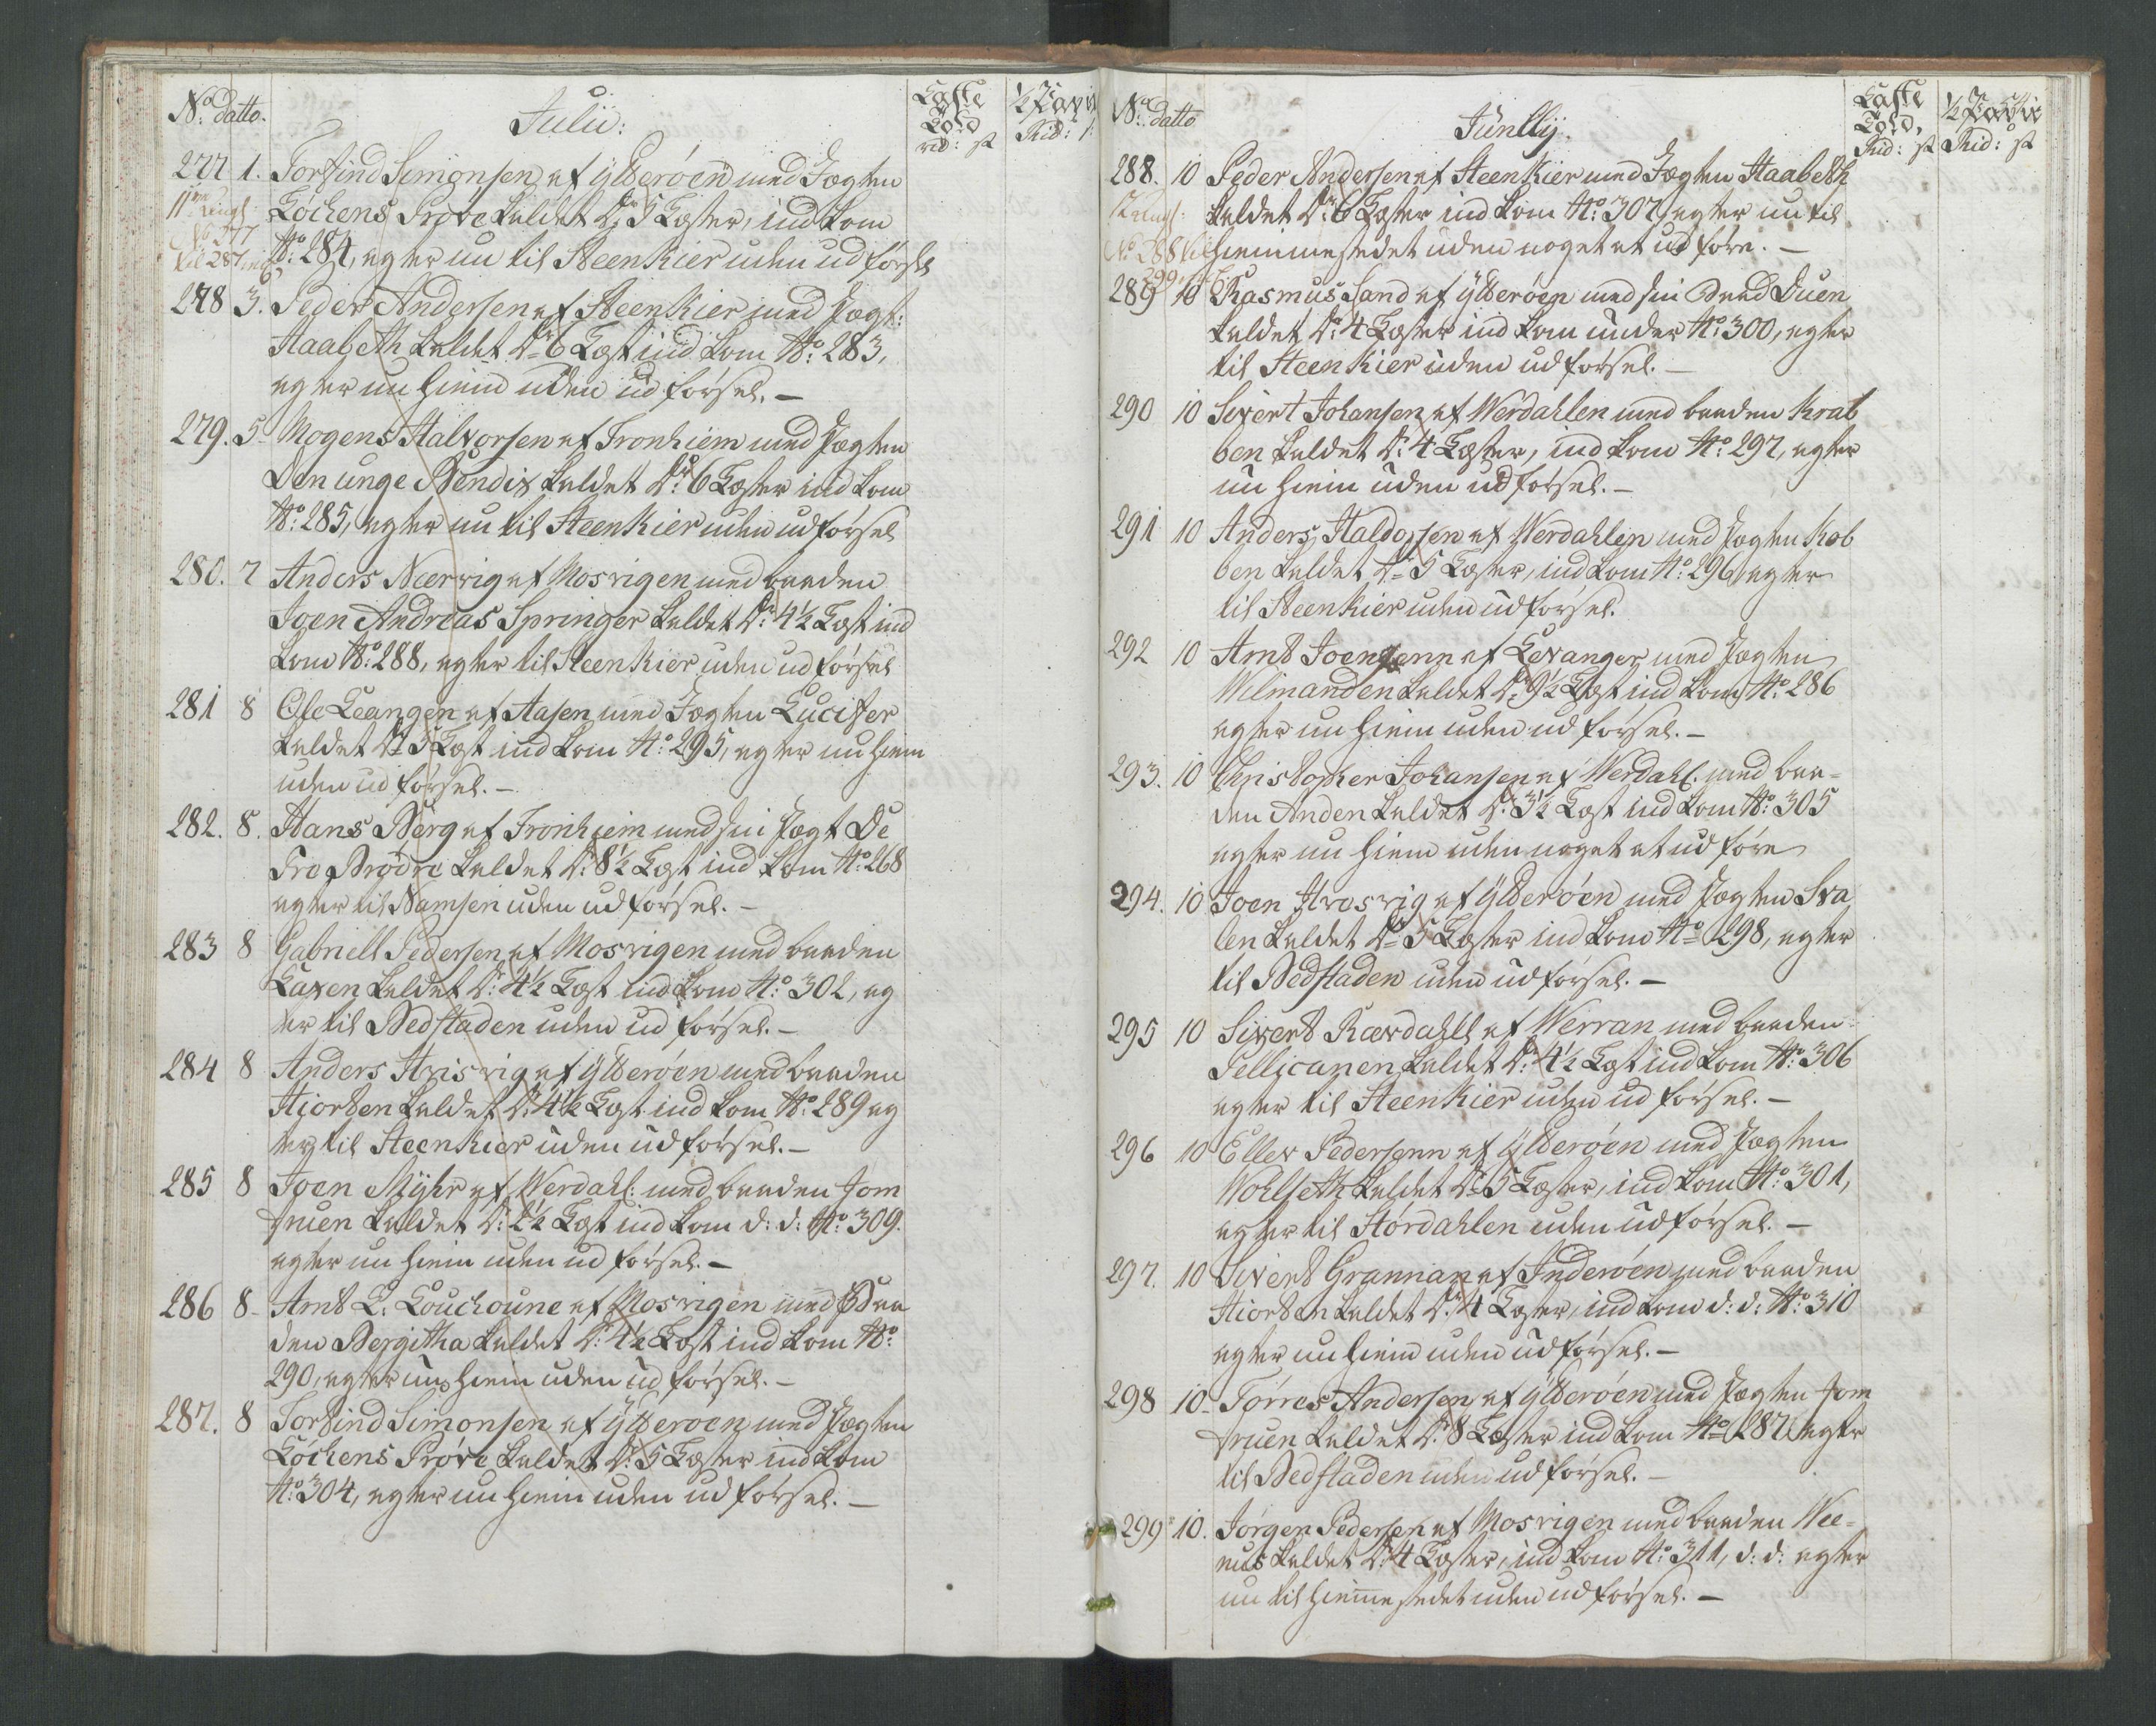 No: datto.
Julii:
Caste
Told
rd: s
½ Par
Rid:
277 1. Torfind Simonsen af Ytterøen med Jægten
Lochens Prøve kaldet Dr: 5 Læster, indkom
No: 284, agter nu til Steenkier uden udførsel
11te
No 277
til 287
278 3. Peder Andersen af Steenkier med Jægt:
Haabeth kaldet Dr 6 Læst indkom No: 283,
agter nu hiem uden udførsel. –
279. 5 Mogens Halvorsen af Tronhiem med Jægten
Den unge Bendix kaldet Dr: 6 Læster indkom
No: 285, agter nu til Steenkier uden udførsel
280. 7 Anders Nærvig af Mosvigen med baaden
Joen Andreas Springer kaldet Dr: 4½ Læst ind
kom No: 288, agter til Steenkier uden udførsel
281 8 Ole Leangen af Aasen med Jægten Lucifer
kaldet Dr 5 Læst indkom No: 295, agter nu hiem
uden udførsel. –
282. 8. Hans Berg af Tronhiem med sin Jægt De
Tre Brødre kaldet Dr: 8½ Læst indkom No: 268
agter til Namsen uden udførsel. –
283 8 Gabriell Pedersen af Mosvigen med baaden
Laxen kaldet Dr: 4½ Læst indkom No: 302, ag
ter til Bedstaden uden udførsel. –
284 8 Anders Hvisvig af Ytterøen med baaden
Hiorten kaldet Dr: 4½ Læst indkom No: 289 ag
ter til Steenkier uden udførsel. –
285 8 Joen Myhr af Werdahl: med baaden Jom
fruen kaldet Dr: 2½ Læst indkom d: d: No: 309.
agter nu hiem uden udførsel. –
286 8 Arnt L: Louchoune af Mosvigen med Baa
den Bergitha kaldet Dr: 4½ Læst indkom No:
290, agter nu hiem uden udførsel. –
287. 8 Torfind Simonsen af Ytterøen med Jægten
Lochens Prøve kaldet Dr: 5 Læster indkom
No: 304, agter nu hiem uden udførsel. –
No: datto
Junlly.
Caste
Told,
Rid: s
½ Partie
Rid: s
288. 10 Peder Andersen af Steenkier med Jægten Haabeth
kaldet Dr: 6 Læster indkom No: 307, agter nu til
hiemmestedet uden noget at udføre. –
No: 288 til
299
289 10 Rasmus Sand af Ytterøen med sin Baad Duen
kaldet Dr: 4 Læster indkom under No: 300, agter
til Steenkier uden udførsel. –
290 10 Sivert Johansen af Werdahlen med baaden Krab
ben kaldet Dr: 4 Læster, indkom No: 297, agter
nu hiem uden udførsel. –
291 10 Anders Haldorsen af Werdahlen med Jægten Kob
ben kaldet Dr 5 Læster, indkom No: 296 agter
til Steenkier uden udførsel.
292 10 Arnt Joensenn af Levanger med Jægten
Wilmanden kaldet Dr: 9½ Læst indkom No: 286
agter nu hiem uden udførsel. –
293. 10 Christopher Johansen af Werdahl. med baa-
den Anden kaldet Dr: 3½ Læst indkom No: 305
agter nu hiem uden noget at udføre
294. 10 Joen Hvosvig af Ytterøen med Jægten Sva
len kaldet Dr 5 Læster indkom No 298, agter
til Bedstaden uden udførsel. –
295 10 Sivert Rævdahll af Werran med baaden
Pellicanen kaldet Dr: 4½ Læst indkom No: 306
agter til Steenkier uden udførsel. –
296 10 Eller Pedersenn af Ytterøen med Jægten
Wohlseth kaldet Dr 5 Læster, indkom No: 301,
agter til Størdahlen uden udførsel. –
297. 10 Sivert Grannan af Inderøen med baaden
Hiorten kaldet Dr. 4 Læster, indkom d: d: No: 310
agter nu hiem uden udførsel. –
298 10 Tørres Andersen af Ytterøen med Jægten Jom
fruen kaldet Dr. 8 Læster indkom No 287 agter
til Bedstaden uden udførsel. –
299 10. Jørgen Pedersen af Mosvigen med baaden Wee-
nus kaldet Dr: 4 Læster, indkom No: 311, d: d: agter
nu til hiemmestedet uden udførsel. –